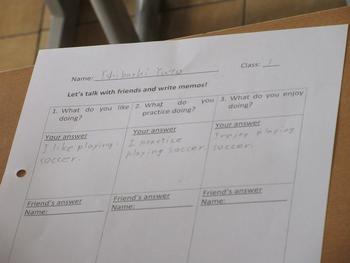 Name: Ishibashi Yuto Class: 1
Let's talk with friends and write memos!
1. What do you like doing?
Your answer
I like playing
soccer.
Friend's answer
Name:
2. What do you practice doing?
Your answer
I practice
playing soccer
Friend's answer
Name:
3. What do you enjoy doing?
Your answer
I enjoy playing
soccer.
Friend's answer
Name: